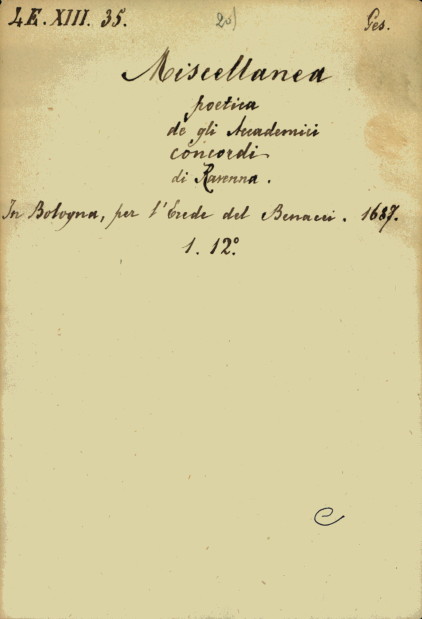 4E.XIII. 35. 25) Ges.
Miscellanea
poetica
de gli Accademici
concordi
di Ravenna.
In Bologna, per l'Erede del Benacci. 1687.
1. 12°.
C